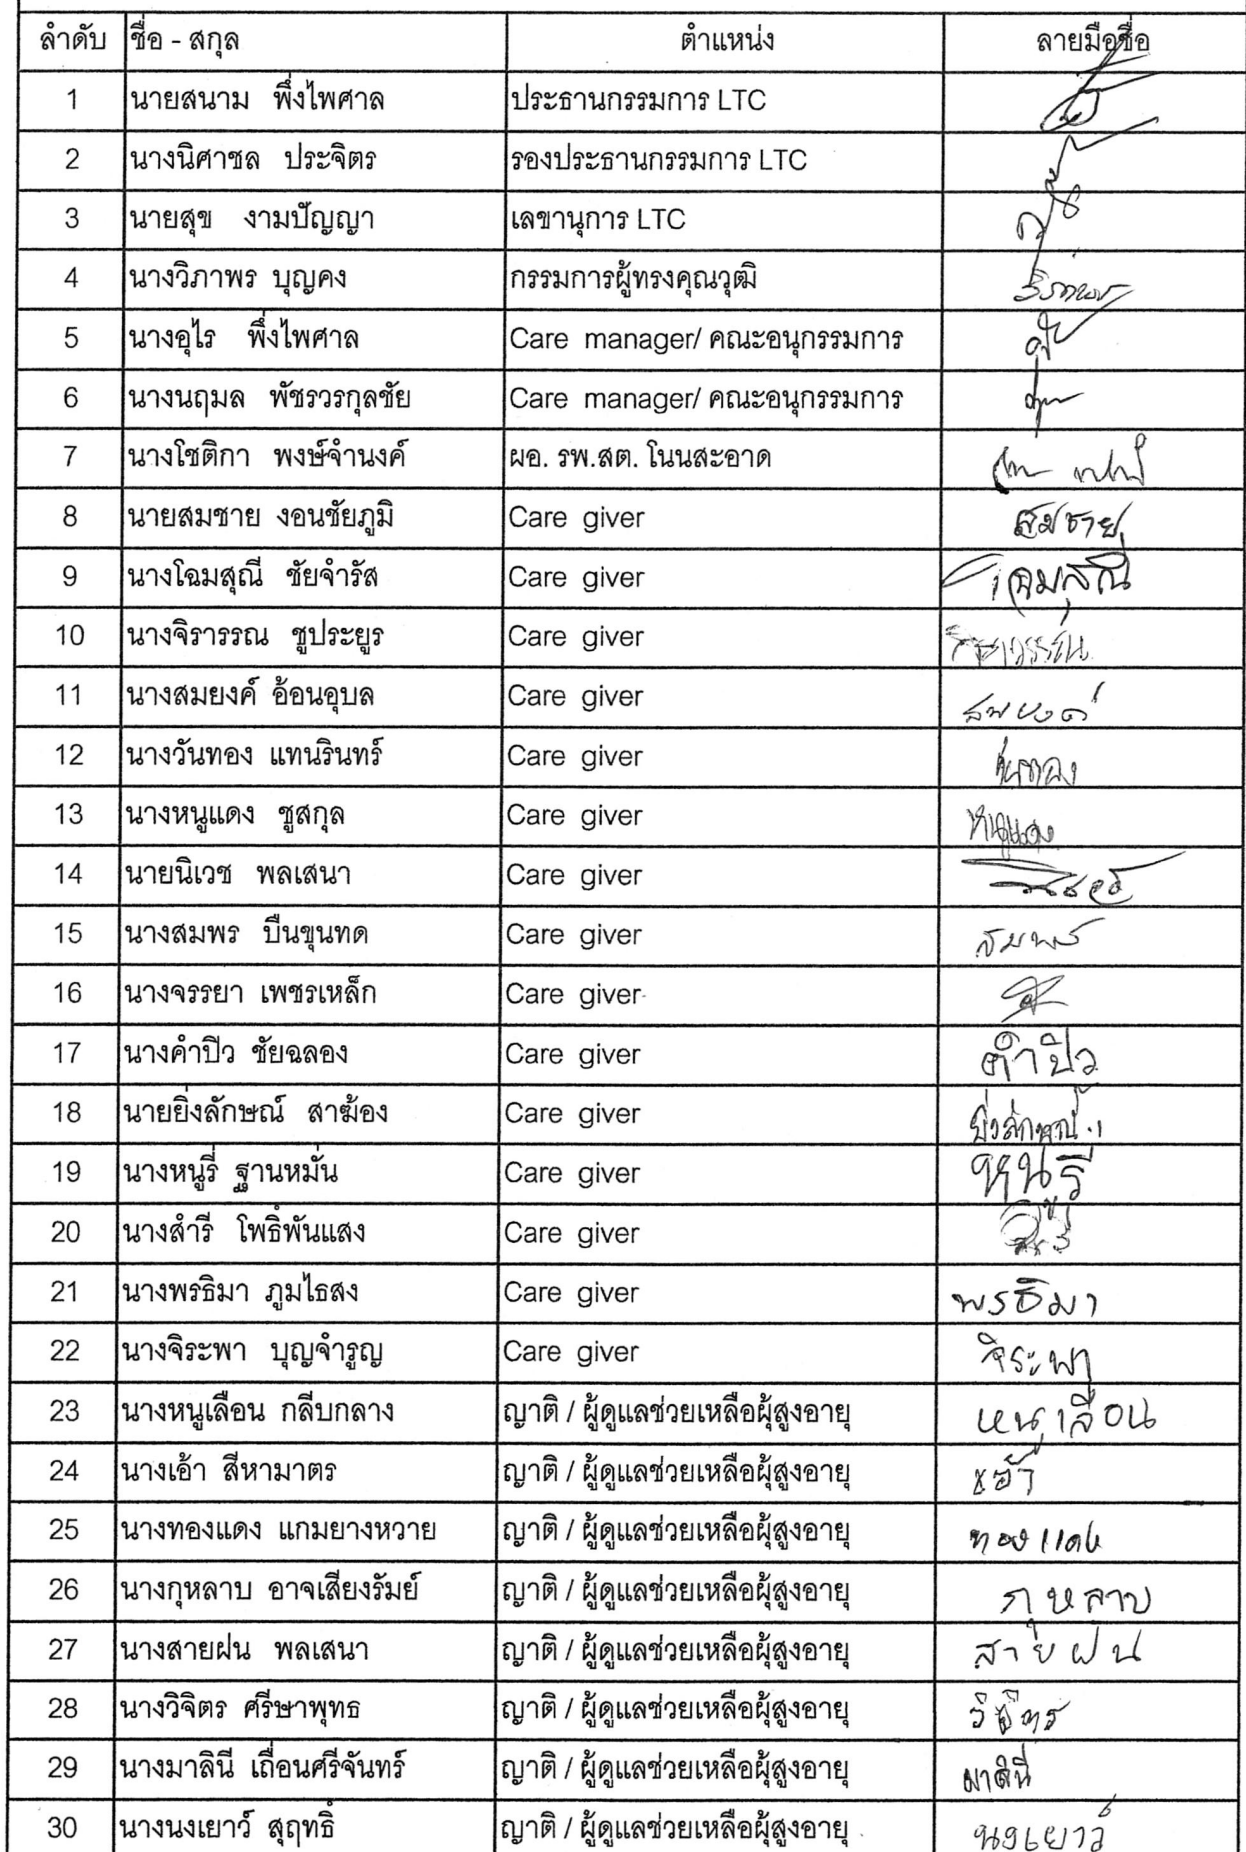 ลำดับ ชื่อ - สกุล ตำแหน่ง ลายมือชื่อ
1 นายสนาม พึ่งไพศาล ประธานกรรมการ LTC
2 นางนิศาชล ประจิตร รองประธานกรรมการ LTC
3 นายสุข งามปัญญา เลขานุการ LTC
4 นางวิภาพร บุญคง กรรมการผู้ทรงคุณวุฒิ วิภาพร
5 นางอุไร พึ่งไพศาล Care manager/ คณะอนุกรรมการ
6 นางนฤมล พัชรวรกุลชัย Care manager/ คณะอนุกรรมการ
7 นางโชติกา พงษ์จำนงค์ ผอ. รพ.สต. โนนสะอาด
8 นายสมชาย งอนชัยภูมิ Care giver สมชาย
9 นางโฉมสุณี ชัยจำรัส Care giver โฉมสุณี
10 นางจิรารรณ ชูประยูร Care giver
11 นางสมยงค์ อ้อนอุบล Care giver สมยงค์
12 นางวันทอง แทนรินทร์ Care giver วันทอง
13 นางหนูแดง ชูสกุล Care giver หนูแดง
14 นายนิเวช พลเสนา Care giver
15 นางสมพร ปืนขุนทด Care giver สมพร
16 นางจรรยา เพชรเหล็ก Care giver
17 นางคำปิว ชัยฉลอง Care giver คำปิว
18 นายยิ่งลักษณ์ สาฆ้อง Care giver ยิ่งลักษณ์
19 นางหนูรี่ ฐานหมั่น Care giver หนูรี
20 นางสำรี โพธิ์พันแสง Care giver
21 นางพรธิมา ภูมไธสง Care giver พรธิมา
22 นางจิระพา บุญจำรูญ Care giver จิระพา
23 นางหนูเลือน กลีบกลาง ญาติ / ผู้ดูแลช่วยเหลือผู้สูงอายุ หนูเลือน
24 นางเอ้า สีหามาตร ญาติ / ผู้ดูแลช่วยเหลือผู้สูงอายุ เอ้า
25 นางทองแดง แกมยางหวาย ญาติ / ผู้ดูแลช่วยเหลือผู้สูงอายุ ทองแดง
26 นางกุหลาบ อาจเสียงรัมย์ ญาติ / ผู้ดูแลช่วยเหลือผู้สูงอายุ กุหลาบ
27 นางสายฝน พลเสนา ญาติ / ผู้ดูแลช่วยเหลือผู้สูงอายุ สายฝน
28 นางวิจิตร ศรีษาพุทธ ญาติ / ผู้ดูแลช่วยเหลือผู้สูงอายุ วิจิตร
29 นางมาลินี เถื่อนศรีจันทร์ ญาติ / ผู้ดูแลช่วยเหลือผู้สูงอายุ มาลินี
30 นางนงเยาว์ สุฤทธิ์ ญาติ / ผู้ดูแลช่วยเหลือผู้สูงอายุ นงเยาว์